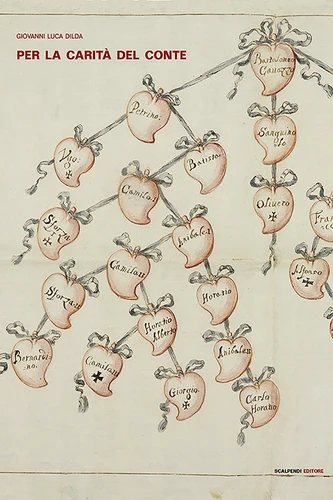 GIOVANNI LUCA DILDA
PER LA CARITÀ DEL CONTE
Bartolomeo
Petrino:
Sanguino
lo
Ugo:
Batista:
Camilo:
Olivero
Fran
Sforza
Anibale:
Camilo:
Alfonso
Sforza:
Horatio
Horatio
Alberto
Bernardi:
no.
Camilo:
Anibale:
Giorgio:
Carlo
Horatio
SCALPENDI EDITORE